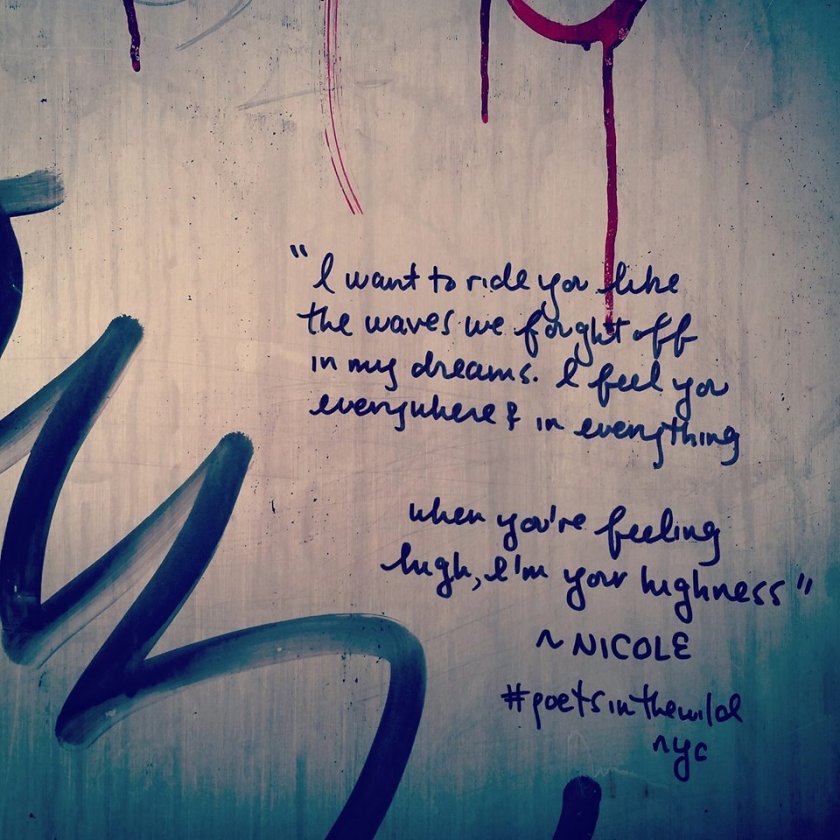 "I want to ride you like
the waves we fought off
in my dreams. I feel you
everywhere & in everything
when you're feeling
high, I'm your highness"
~ NICOLE
#poetsinthewild
nyc